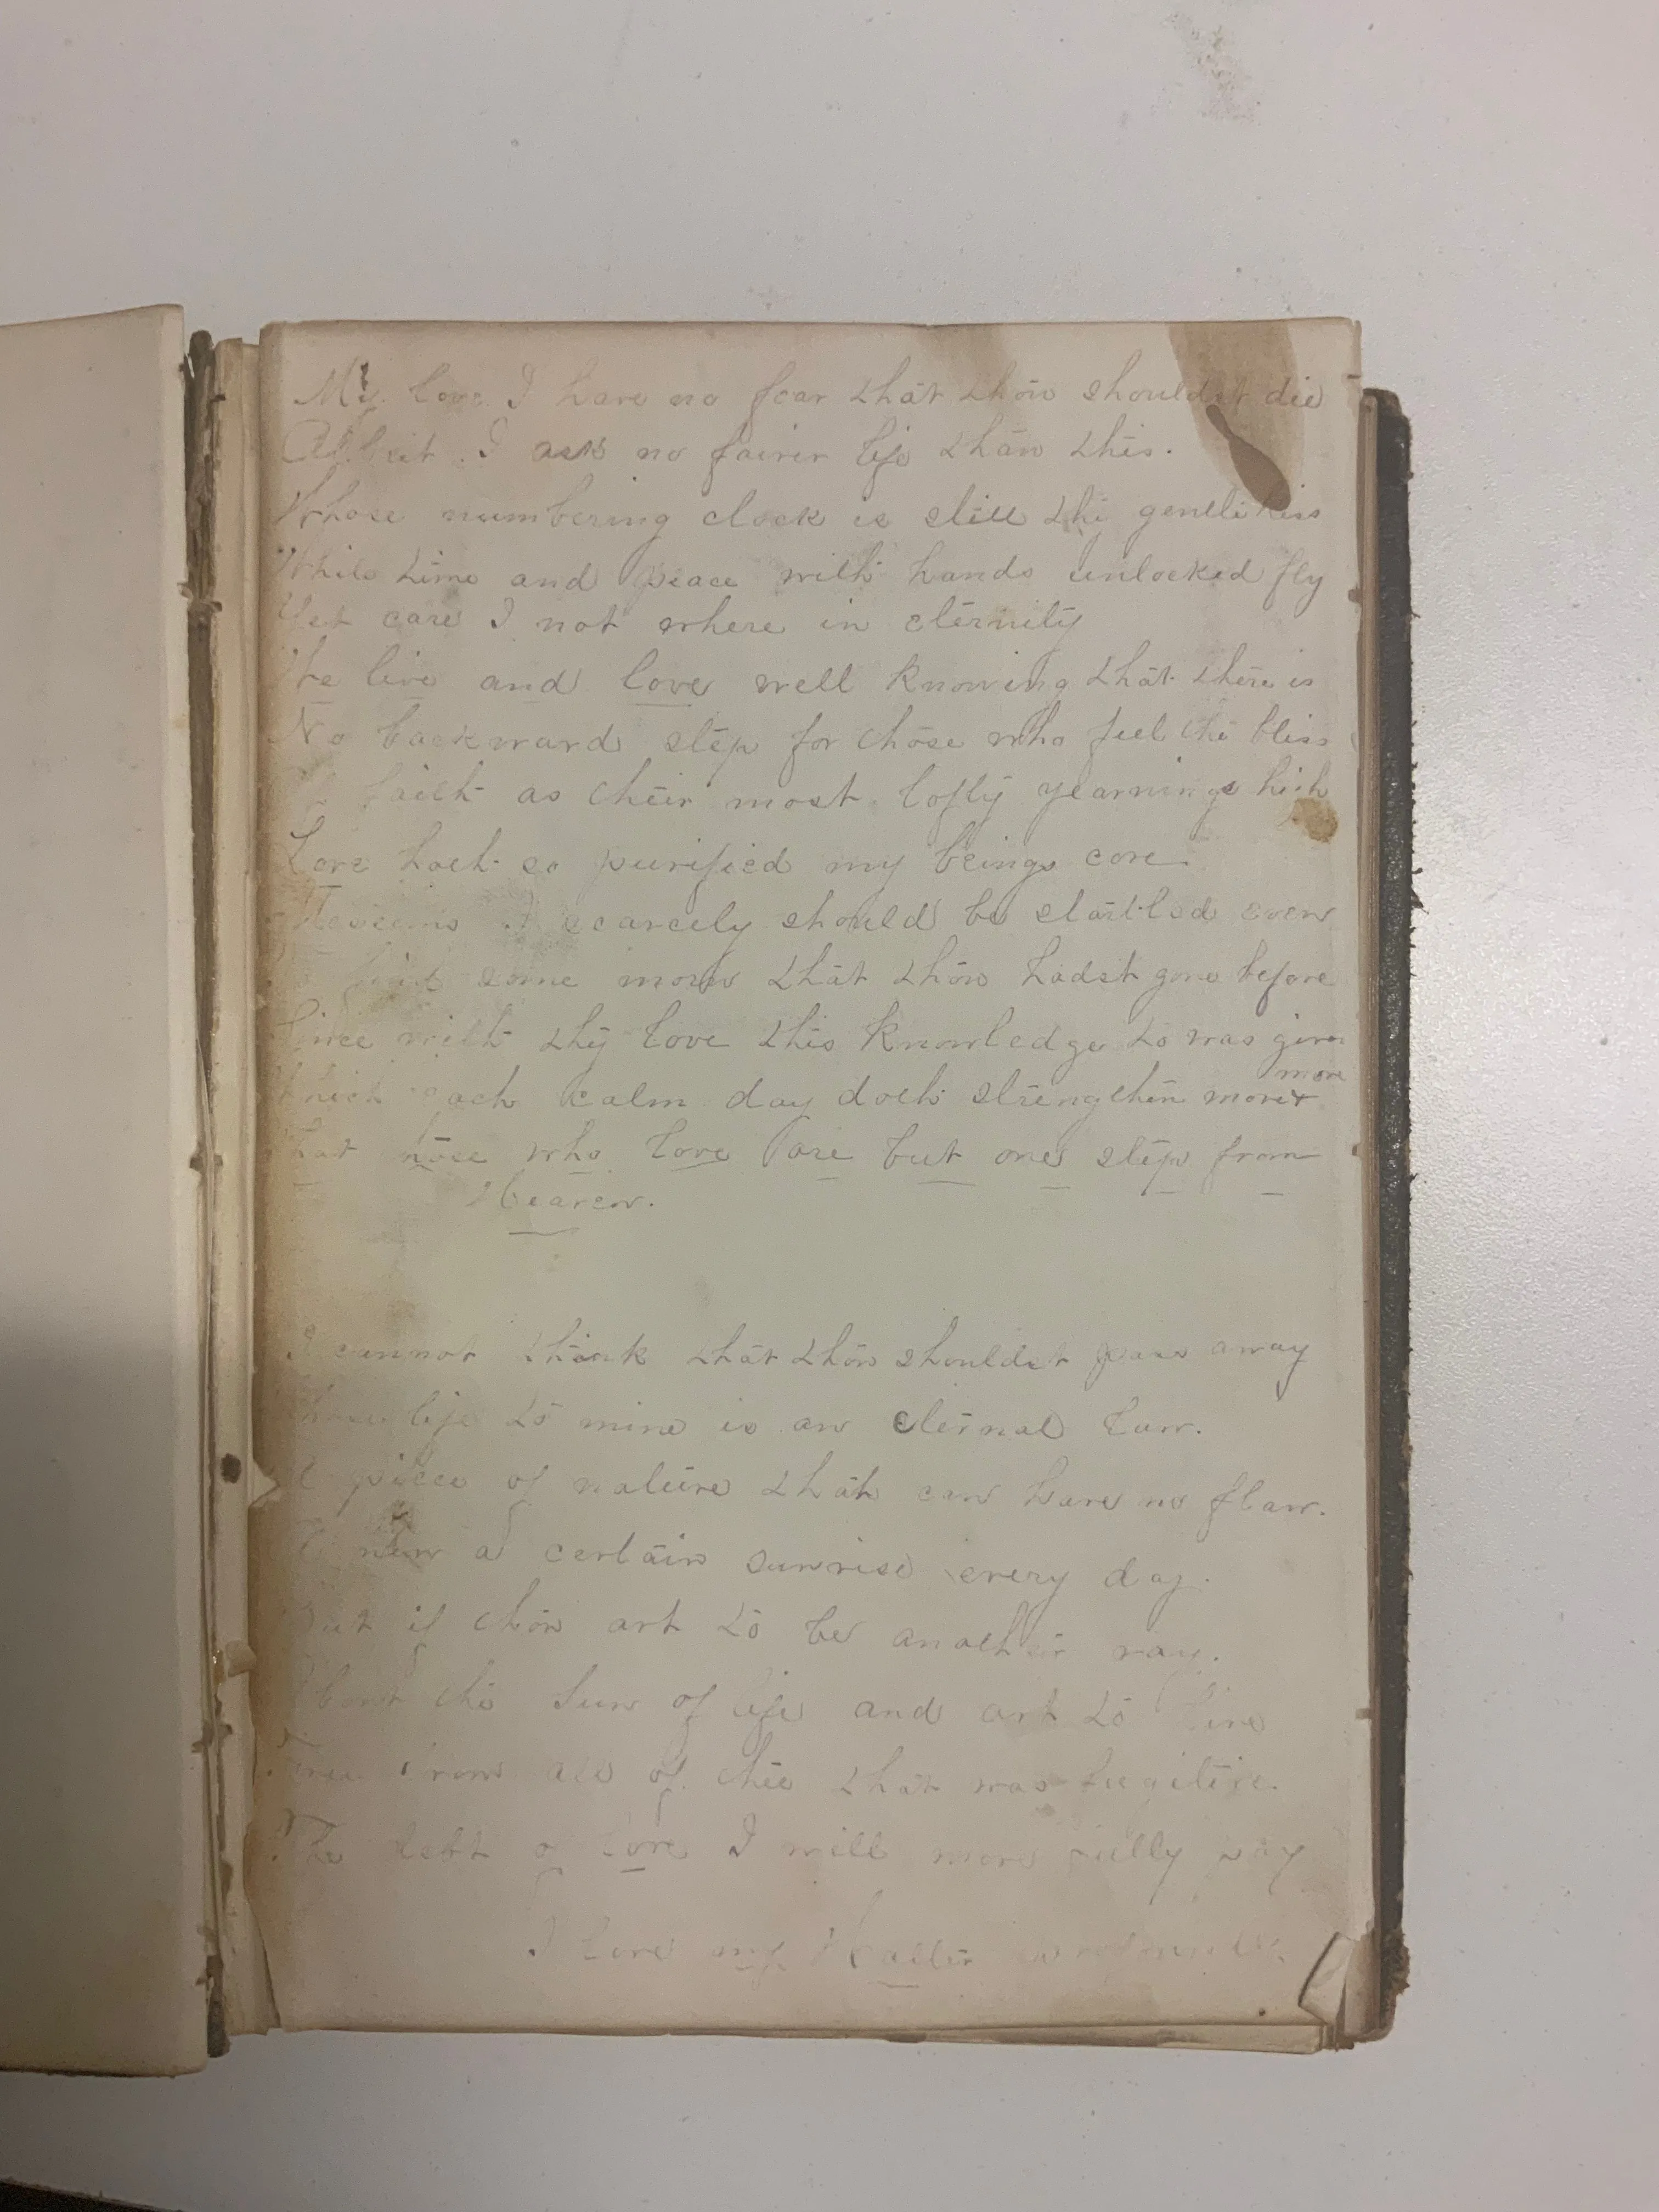 My love I have no fear that thou shouldst die
Albeit I ask no fairer life than this.
Whose numbering clock is still thy gentle kiss
While time and peace with hands unlocked fly
Yet care I not where in eternity
We live and love well knowing that there is
No backward step for those who feel the bliss
Of faith as their most lofty yearnings high
Love hath so purified my beings core
Meseems I scarcely should be startled even
To find some morn that thou hadst gone before
Since with thy love this knowledge to was given
more
Which each calm day doth strengthen more &
That those who love are but one step from
Heaven.
I cannot think that thou shouldst pass away
Whose life to mine is an eternal law.
A piece of nature that can have no flaw.
A new a certain sunrise every day.
But if thou art to be another ray.
About the Sun of life and art to live
Free from all of thee that was fugitive.
The debt of love I will more fully pay
I love my